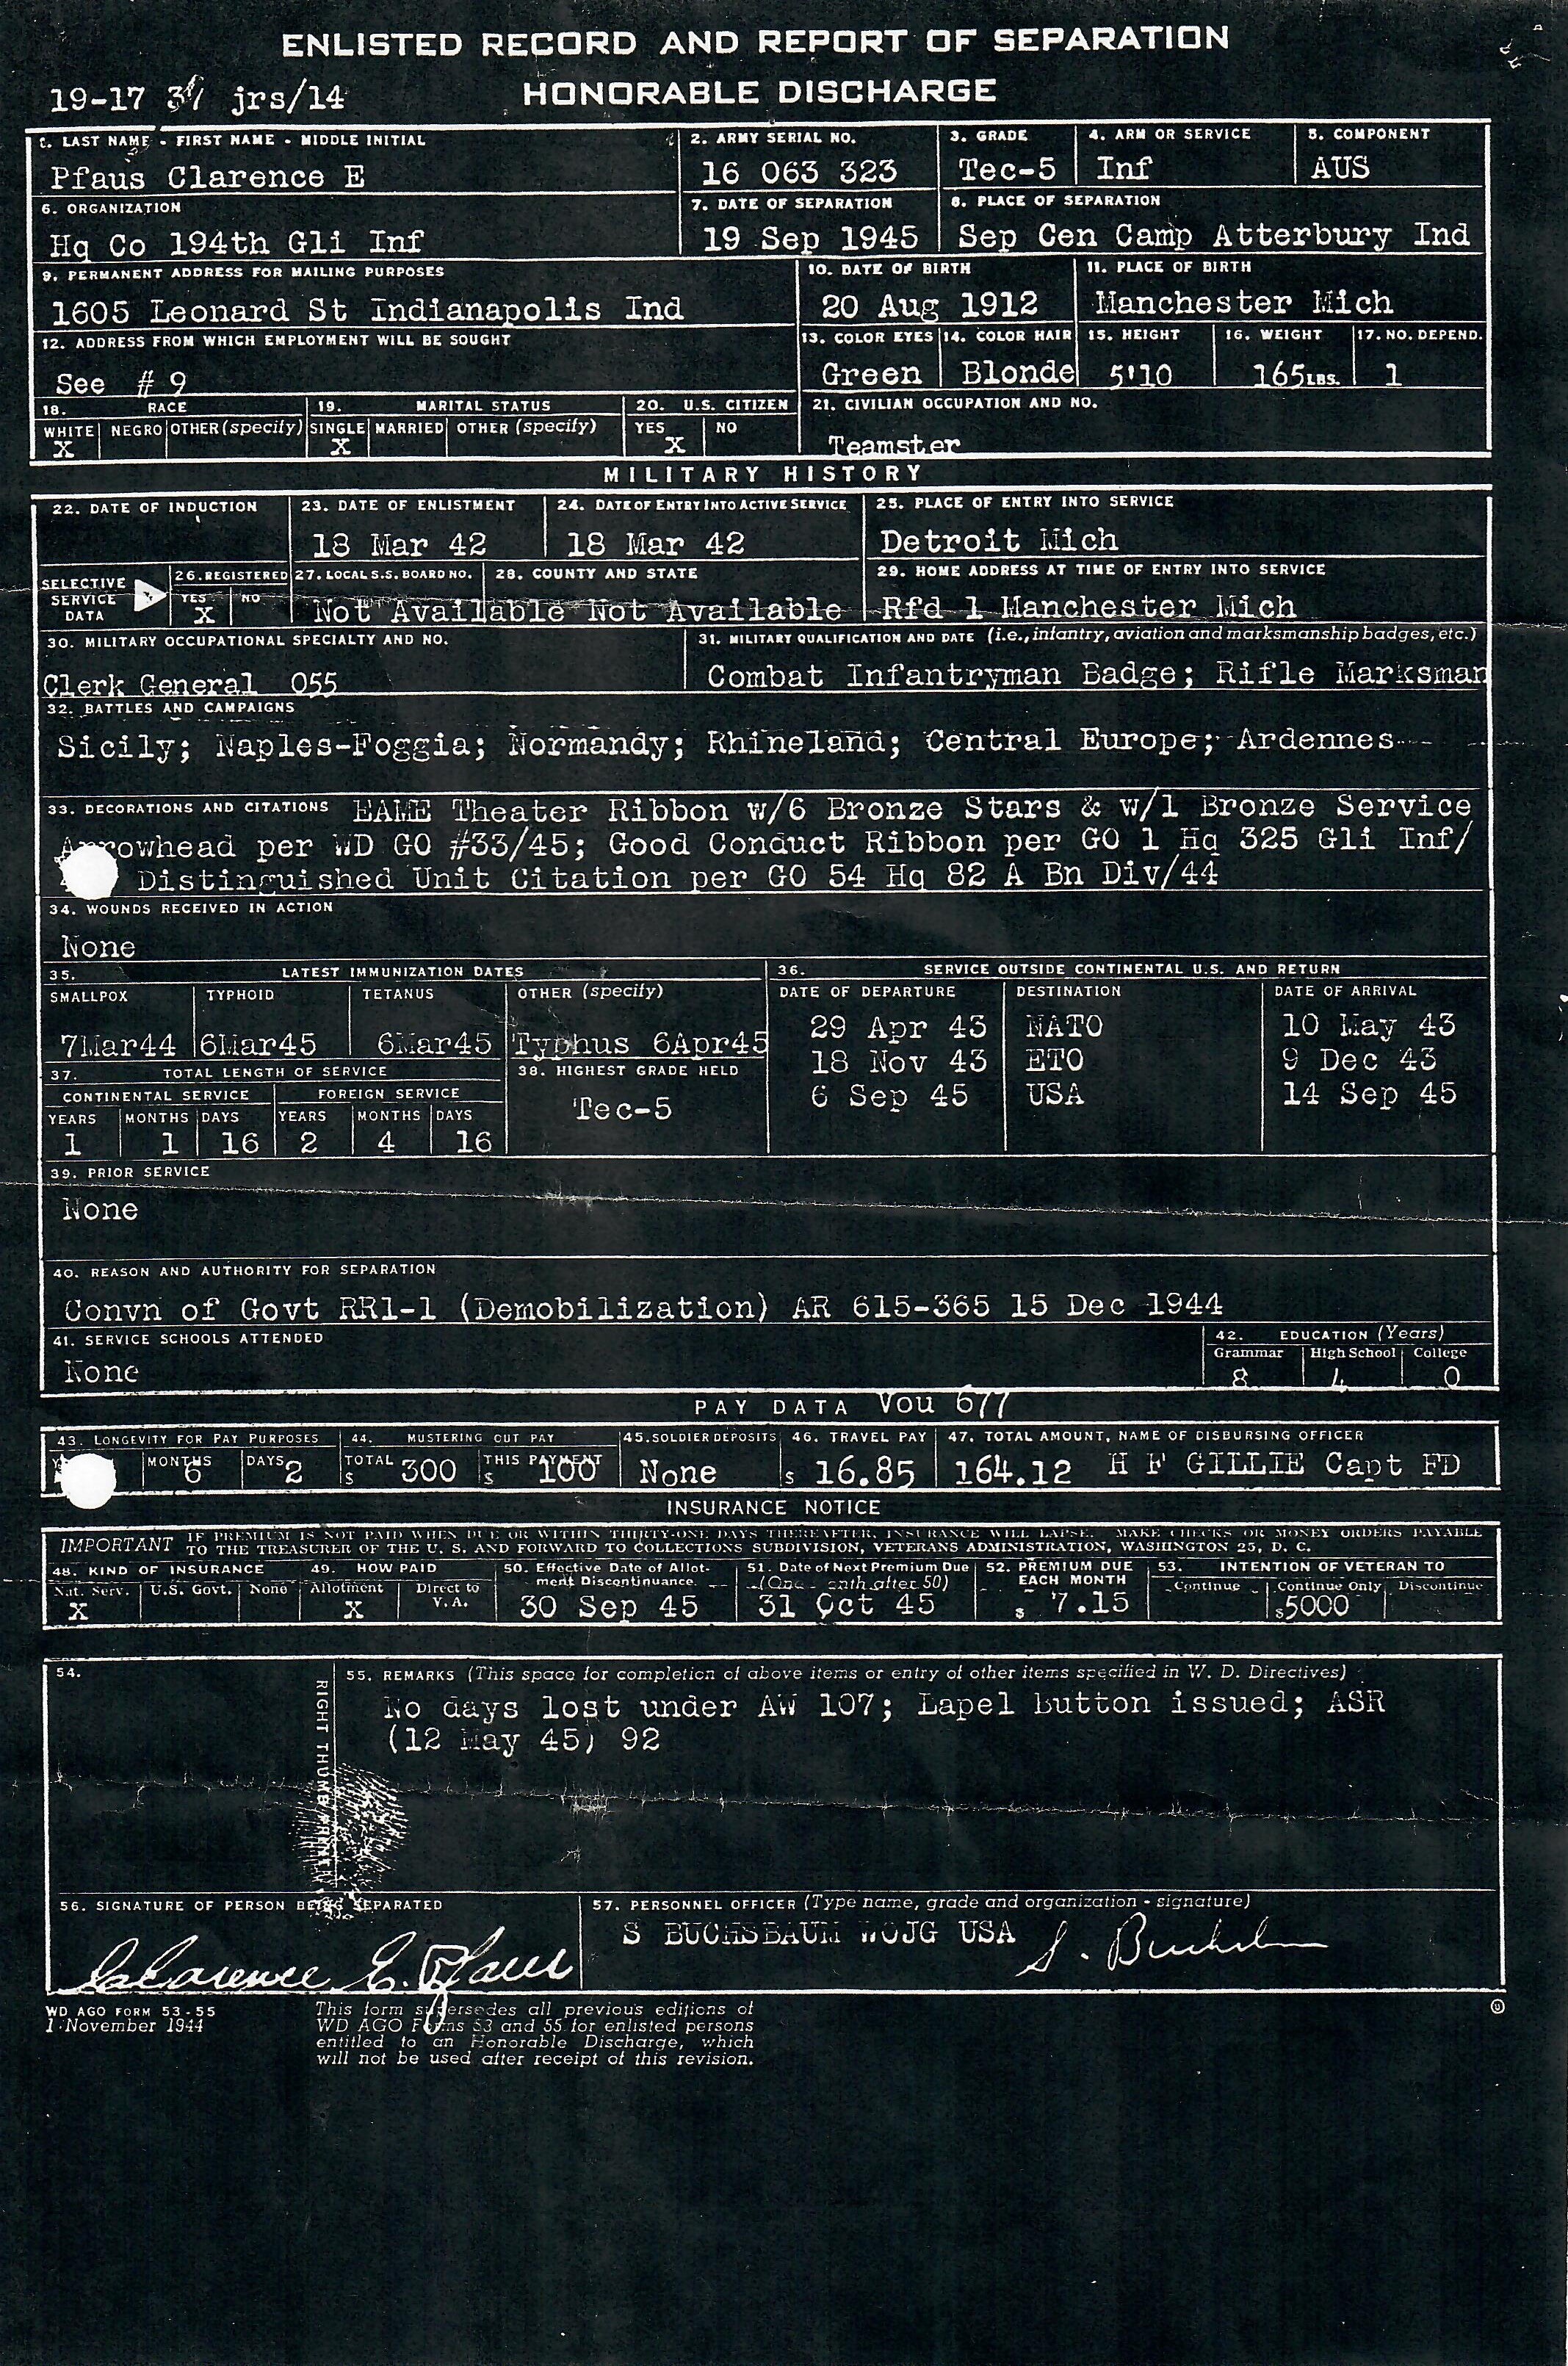 ENLISTED RECORD AND REPORT OF SEPARATION
HONORABLE DISCHARGE
19-17 jrs/14
1. LAST NAME - FIRST NAME - MIDDLE INITIAL
Pfaus Clarence E
2. ARMY SERIAL NO.
16 063 323
3. GRADE
Tec-5
4. ARM OR SERVICE
Inf
5. COMPONENT
AUS
6. ORGANIZATION
Hq Co 194th Gli Inf
7. DATE OF SEPARATION
19 Sep 1945
8. PLACE OF SEPARATION
Sep Cen Camp Atterbury Ind
9. PERMANENT ADDRESS FOR MAILING PURPOSES
1605 Leonard St Indianapolis Ind
10. DATE OF BIRTH
20 Aug 1912
11. PLACE OF BIRTH
Manchester Mich
12. ADDRESS FROM WHICH EMPLOYMENT WILL BE SOUGHT
See # 9
13. COLOR EYES
Green
14. COLOR HAIR
Blonde
15. HEIGHT
5'10
16. WEIGHT
165 LBS.
17. NO. DEPEND.
1
18. RACE
WHITE NEGRO OTHER (specify)
X
19. MARITAL STATUS
SINGLE MARRIED OTHER (specify)
X
20. U.S. CITIZEN
YES NO
X
21. CIVILIAN OCCUPATION AND NO.
Teamster
MILITARY HISTORY
22. DATE OF INDUCTION
23. DATE OF ENLISTMENT
18 Mar 42
24. DATE OF ENTRY INTO ACTIVE SERVICE
18 Mar 42
25. PLACE OF ENTRY INTO SERVICE
Detroit Mich
SELECTIVE
SERVICE
DATA
26. REGISTERED
YES NO
X
27. LOCAL S.S. BOARD NO.
Not Available
28. COUNTY AND STATE
Not Available
29. HOME ADDRESS AT TIME OF ENTRY INTO SERVICE
Rfd 1 Manchester Mich
30. MILITARY OCCUPATIONAL SPECIALTY AND NO.
Clerk General 055
31. MILITARY QUALIFICATION AND DATE (i.e., infantry, aviation and marksmanship badges, etc.)
Combat Infantryman Badge; Rifle Marksman
32. BATTLES AND CAMPAIGNS
Sicily; Naples-Foggia; Normandy; Rhineland; Central Europe; Ardennes
33. DECORATIONS AND CITATIONS EAME Theater Ribbon w/6 Bronze Stars & w/1 Bronze Service
Arrowhead per WD GO #33/45; Good Conduct Ribbon per GO 1 Hq 325 Gli Inf/
Distinguished Unit Citation per GO 54 Hq 82 A Bn Div/44
34. WOUNDS RECEIVED IN ACTION
None
35. LATEST IMMUNIZATION DATES
SMALLPOX TYPHOID TETANUS OTHER (specify)
7Mar44 6Mar45 6Mar45 Typhus 6Apr45
36. SERVICE OUTSIDE CONTINENTAL U.S. AND RETURN
DATE OF DEPARTURE DESTINATION DATE OF ARRIVAL
29 Apr 43 NATO 10 May 43
18 Nov 43 ETO 9 Dec 43
6 Sep 45 USA 14 Sep 45
37. TOTAL LENGTH OF SERVICE
CONTINENTAL SERVICE FOREIGN SERVICE
YEARS MONTHS DAYS YEARS MONTHS DAYS
1 1 16 2 4 16
38. HIGHEST GRADE HELD
Tec-5
39. PRIOR SERVICE
None
40. REASON AND AUTHORITY FOR SEPARATION
Convn of Govt RR1-1 (Demobilization) AR 615-365 15 Dec 1944
41. SERVICE SCHOOLS ATTENDED
None
42. EDUCATION (Years)
Grammar High School College
8 4 0
PAY DATA Vou 677
43. LONGEVITY FOR PAY PURPOSES
MONTHS DAYS
6 2
44. MUSTERING OUT PAY
TOTAL THIS PAYMENT
$ 300 $ 100
45. SOLDIER DEPOSITS
None
46. TRAVEL PAY
$ 16.85
47. TOTAL AMOUNT, NAME OF DISBURSING OFFICER
164.12 H F GILLIE Capt FD
INSURANCE NOTICE
IMPORTANT IF PREMIUM IS NOT PAID WHEN DUE OR WITHIN THIRTY-ONE DAYS THEREAFTER, INSURANCE WILL LAPSE. MAKE CHECKS OR MONEY ORDERS PAYABLE
TO THE TREASURER OF THE U. S. AND FORWARD TO COLLECTIONS SUBDIVISION, VETERANS ADMINISTRATION, WASHINGTON 25, D. C.
48. KIND OF INSURANCE
Nat. Serv. U.S. Govt. None
X
49. HOW PAID
Allotment Direct to V.A.
X
50. Effective Date of Allot-
ment Discontinuance
30 Sep 45
51. Date of Next Premium Due
(One onth after 50)
31 Oct 45
52. PREMIUM DUE
EACH MONTH
$ 7.15
53. INTENTION OF VETERAN TO
Continue Continue Only Discontinue
$5000
54.
RIGHT THUMB PRINT
55. REMARKS (This space for completion of above items or entry of other items specified in W. D. Directives)
No days lost under AW 107; Lapel button issued; ASR
(12 May 45) 92
56. SIGNATURE OF PERSON BEING SEPARATED
Clarence E. Pfaus
57. PERSONNEL OFFICER (Type name, grade and organization - signature)
S BUCHSBAUM WOJG USA
WD AGO FORM 53-55
1 November 1944
This form supersedes all previous editions of
WD AGO Forms 53 and 55 for enlisted persons
entitled to an Honorable Discharge, which
will not be used after receipt of this revision.